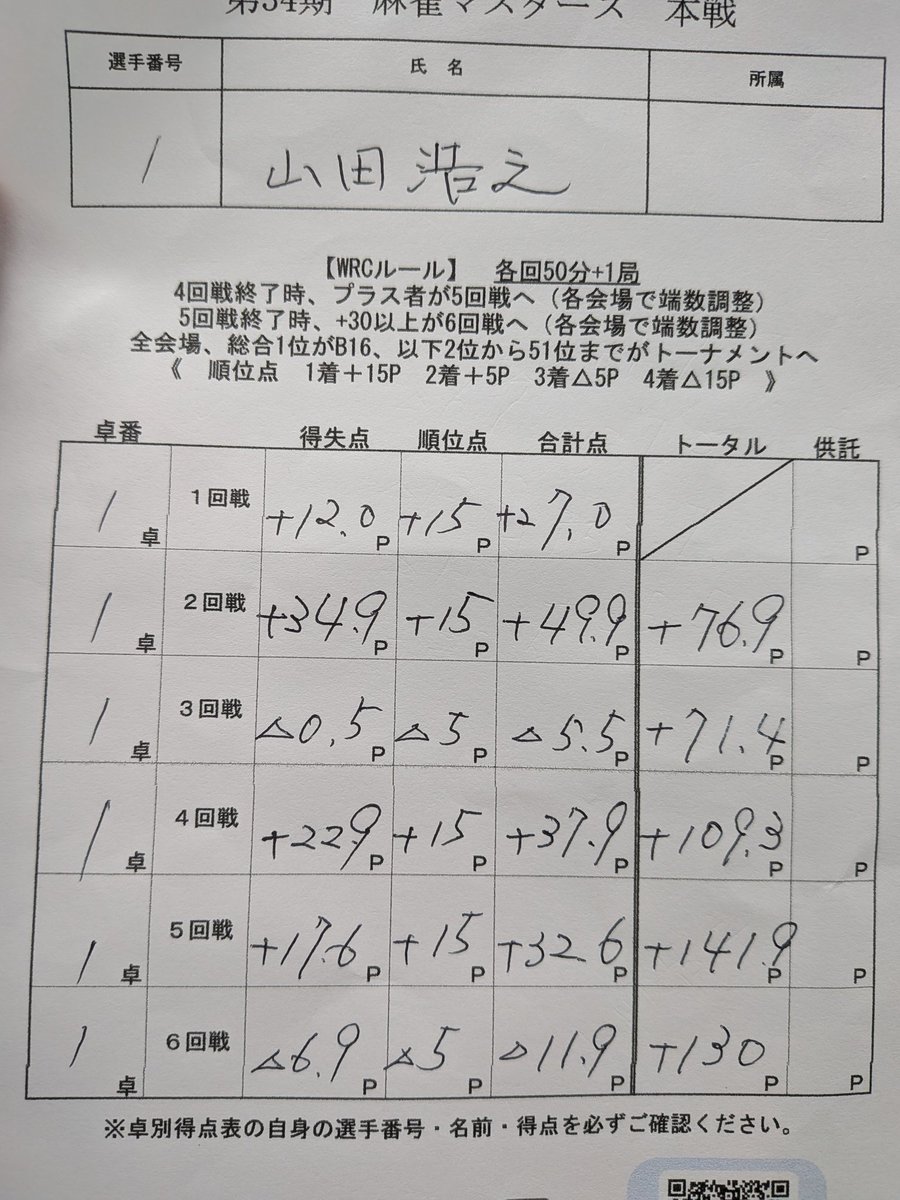 第34期 麻雀マスターズ 本戦
選手番号 氏 名 所属
1 山田浩之
【WRCルール】 各回50分+1局
4回戦終了時、プラス者が5回戦へ（各会場で端数調整）
5回戦終了時、+30以上が6回戦へ（各会場で端数調整）
全会場、総合1位がB16、以下2位から51位までがトーナメントへ
《 順位点 1着＋15P 2着＋5P 3着△5P 4着△15P 》
卓番 得失点 順位点 合計点 トータル 供託
1卓 1回戦 +12.0P +15P +27.0P P
1卓 2回戦 +34.9P +15P +49.9P +76.9P P
1卓 3回戦 △0.5P △5P △5.5P +71.4P P
1卓 4回戦 +22.9P +15P +37.9P +109.3P P
1卓 5回戦 +17.6P +15P +32.6P +141.9P P
1卓 6回戦 △6.9P △5P △11.9P +130P P
※卓別得点表の自身の選手番号・名前・得点を必ずご確認ください。